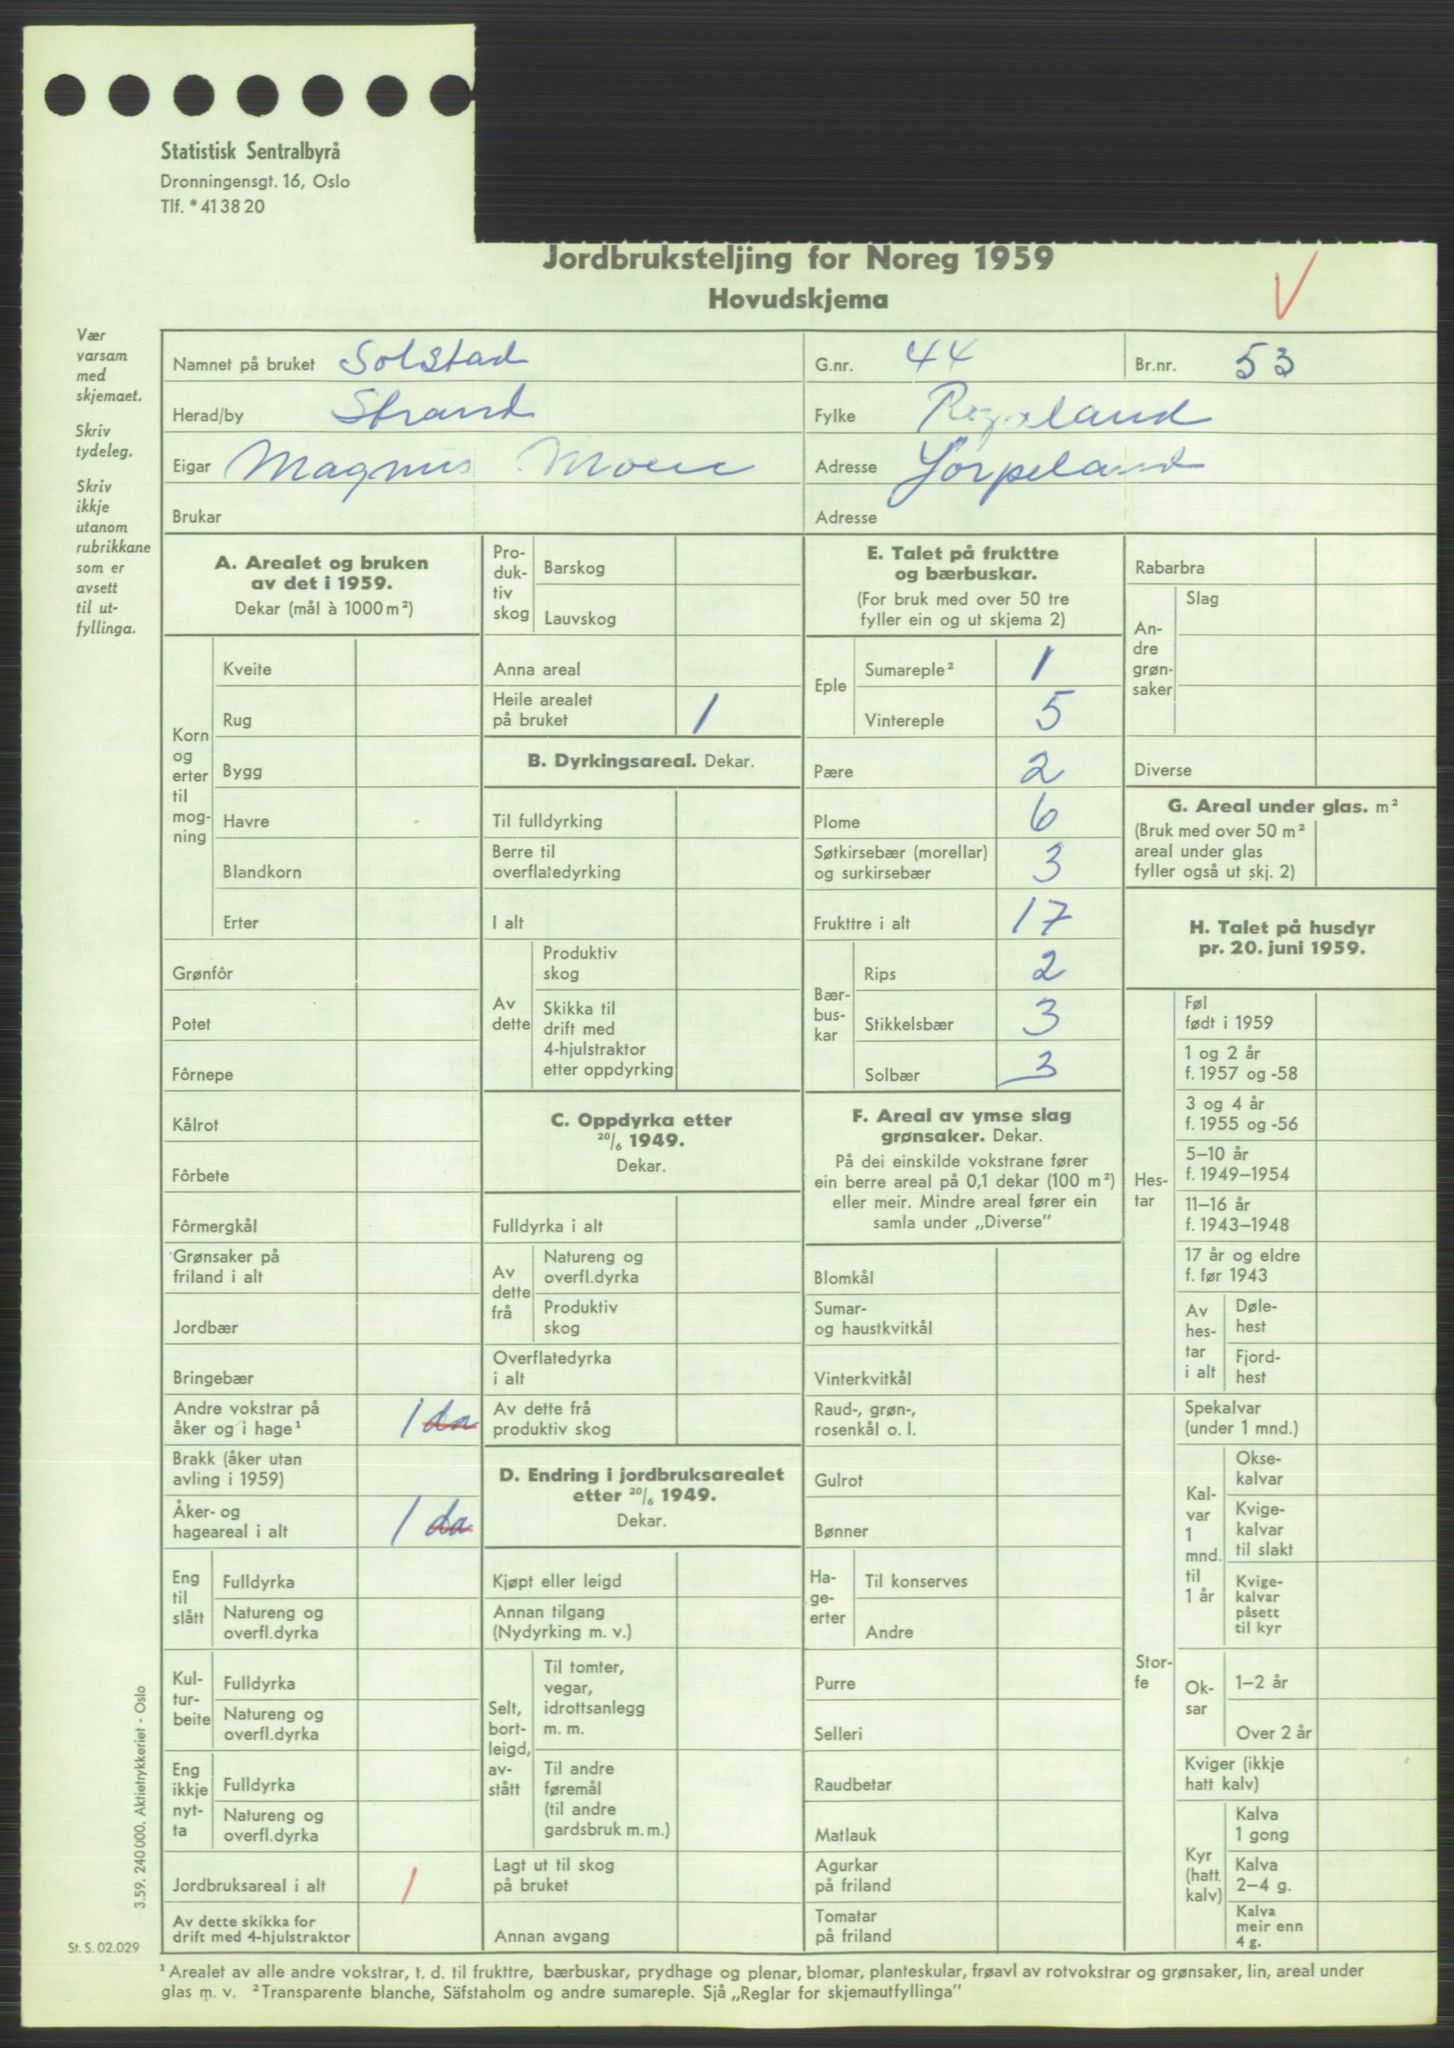 Statistisk Sentralbyrå
Dronningensgt. 16, Oslo
Tlf. * 41 38 20
Jordbruksteljing for Noreg 1959
Hovudskjema
Vær
varsam
med
skjemaet.
Skriv
tydeleg.
Skriv
ikkje
utanom
rubrikkane
som er
avsett
til ut-
fyllinga.
Namnet på bruket Solstad G.nr. 44 Br.nr. 53
Herad/by Strand Fylke Rogaland
Eigar Magnus Moen Adresse Jørpeland
Brukar Adresse
A. Arealet og bruken
av det i 1959.
Dekar (mål à 1000 m²)
Korn
og
erter
til
mog-
ning
Kveite
Rug
Bygg
Havre
Blandkorn
Erter
Grønfôr
Potet
Fôrnepe
Kålrot
Fôrbete
Fôrmergkål
Grønsaker på
friland i alt
Jordbær
Bringebær
Andre vokstrar på
åker og i hage¹ 1 da
Brakk (åker utan
avling i 1959)
Åker- og
hageareal i alt 1 da
Eng
til
slått
Fulldyrka
Natureng og
overfl.dyrka
Kul-
tur-
beite
Fulldyrka
Natureng og
overfl.dyrka
Eng
ikkje
nyt-
ta
Fulldyrka
Natureng og
overfl.dyrka
Jordbruksareal i alt 1
Av dette skikka for
drift med 4-hjulstraktor
Pro-
duk-
tiv
skog
Barskog
Lauvskog
Anna areal
Heile arealet
på bruket 1
B. Dyrkingsareal. Dekar.
Til fulldyrking
Berre til
overflatedyrking
I alt
Av
dette
Produktiv
skog
Skikka til
drift med
4-hjulstraktor
etter oppdyrking
C. Oppdyrka etter
20/6 1949.
Dekar.
Fulldyrka i alt
Av
dette
frå
Natureng og
overfl.dyrka
Produktiv
skog
Overflatedyrka
i alt
Av dette frå
produktiv skog
D. Endring i jordbruksarealet
etter 20/6 1949.
Dekar.
Kjøpt eller leigd
Annan tilgang
(Nydyrking m. v.)
Selt,
bort-
leigd,
av-
stått
Til tomter,
vegar,
idrottsanlegg
m. m.
Til andre
føremål
(til andre
gardsbruk m. m.)
Lagt ut til skog
på bruket
Annan avgang
E. Talet på frukttre
og bærbuskar.
(For bruk med over 50 tre
fyller ein og ut skjema 2)
Eple
Sumareple² 1
Vintereple 5
Pære 2
Plome 6
Søtkirsebær (morellar)
og surkirsebær 3
Frukttre i alt 17
Bær-
bus-
kar
Rips 2
Stikkelsbær 3
Solbær 3
F. Areal av ymse slag
grønsaker. Dekar.
På dei einskilde vokstrane fører
ein berre areal på 0,1 dekar (100 m²)
eller meir. Mindre areal fører ein
samla under „Diverse”
Blomkål
Sumar-
og haustkvitkål
Vinterkvitkål
Raud-, grøn-,
rosenkål o. l.
Gulrot
Bønner
Ha-
ge-
erter
Til konserves
Andre
Purre
Selleri
Raudbetar
Matlauk
Agurkar
på friland
Tomatar
på friland
Rabarbra
An-
dre
grøn-
saker
Slag
Diverse
G. Areal under glas. m²
(Bruk med over 50 m²
areal under glas
fyller også ut skj. 2)
H. Talet på husdyr
pr. 20. juni 1959.
Hes-
tar
Føl
født i 1959
1 og 2 år
f. 1957 og -58
3 og 4 år
f. 1955 og -56
5–10 år
f. 1949–1954
11–16 år
f. 1943–1948
17 år og eldre
f. før 1943
Av
hes-
tar
i alt
Døle-
hest
Fjord-
hest
Stor-
fe
Spekalvar
(under 1 mnd.)
Kal-
var
1
mnd.
til
1 år
Okse-
kalvar
Kvige-
kalvar
til slakt
Kvige-
kalvar
påsett
til kyr
Ok-
sar
1–2 år
Over 2 år
Kviger (ikkje
hatt kalv)
Kyr
(hatt
kalv)
Kalva
1 gong
Kalva
2–4 g.
Kalva
meir enn
4 g.
3.59. 240 000. Aktietrykkeriet - Oslo
St. S. 02.029
¹ Arealet av alle andre vokstrar, t. d. til frukttre, bærbuskar, prydhage og plenar, blomar, planteskular, frøavl av rotvokstrar og grønsaker, lin, areal under
glas m. v. ² Transparente blanche, Säfstaholm og andre sumareple. Sjå „Reglar for skjemautfyllinga”